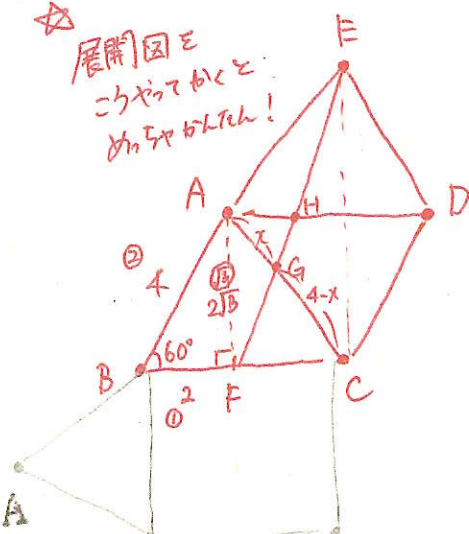 ☆
展開図を
こうやってかくと
めっちゃかんたん!
E
A
H
D
② 4
x
G
√3
2√3
4-x
60°
B
2
①
F
C
A